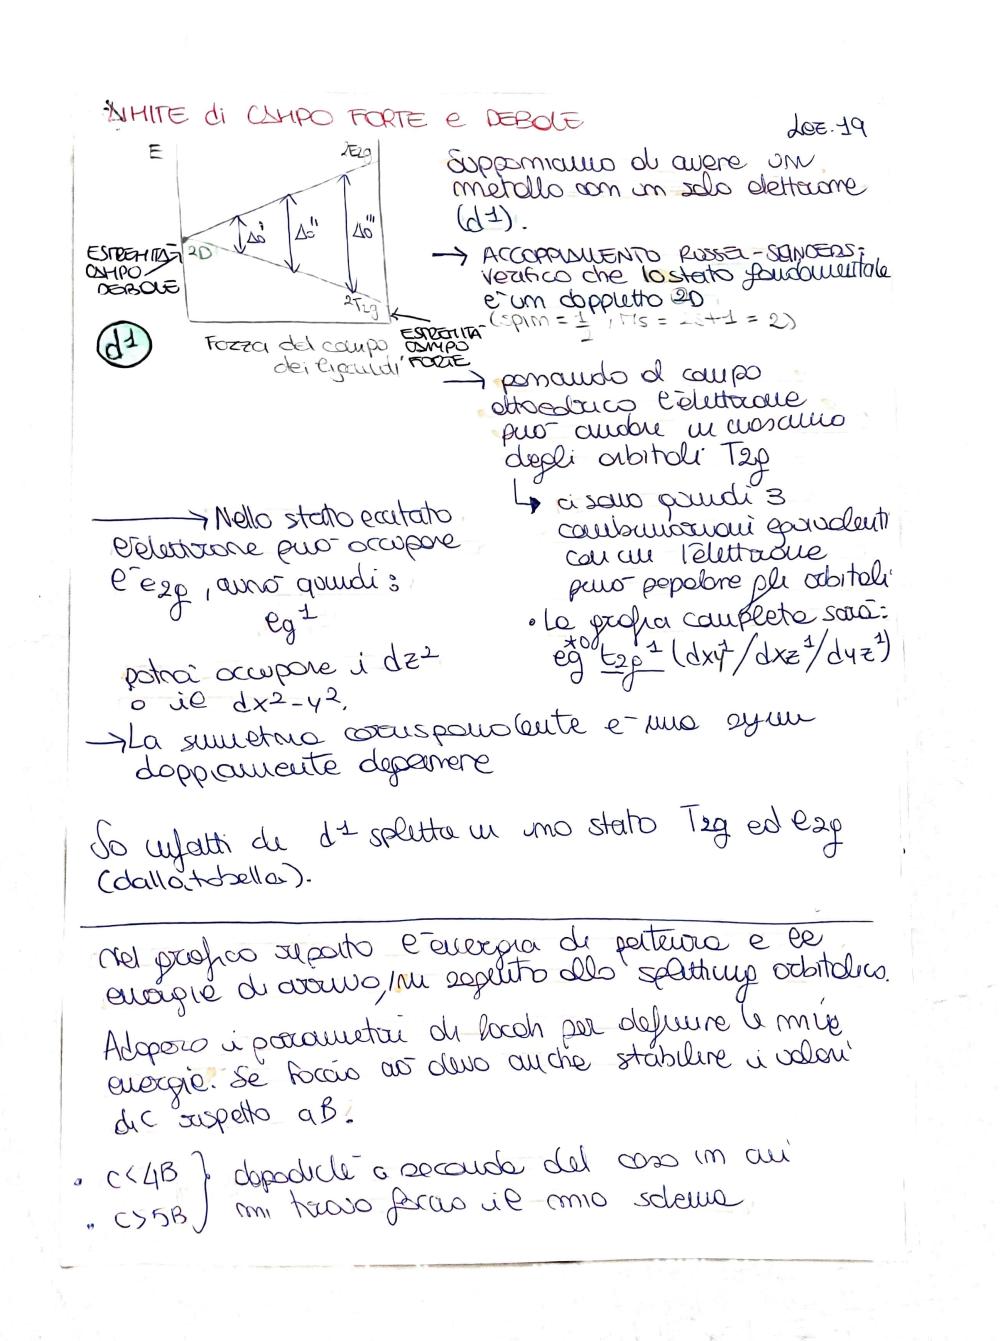 LIMITE di CAMPO FORTE e DEBOLE
Lez. 19
E
2E2g
Δo' Δo'' Δo'''
2D
2T2g
ESTREMITA'
CAMPO
DEBOLE
d1
Forza del campo
dei leganti
ESTREMITA'
CAMPO
FORTE
Supponiamo di avere un
metallo con un solo elettrone
(d1).
→ ACCOPPIAMENTO RUSSEL-SANDERS:
verifico che lo stato fondamentale
è un doppietto 2D
(spin = 1/2, Ms = 2s+1 = 2)
→ passando al campo
ottaedrico l'elettrone
può andare in ciascuno
degli orbitali T2g
↳ ci sono quindi 3
combinazioni equivalenti
con cui l'elettrone
può popolare gli orbitali
• La grafia completa sarà:
eg*0 t2g1 (dxy1/dxz1/dyz1)
→ Nello stato eccitato
l'elettrone può occupare
l'e2g, avrò quindi:
eg1
potrà occupare i dz2
o il dx2-y2.
→ La simmetria corrispondente è una
doppiamente degenere
So infatti che d1 splitta in uno stato T2g ed e2g
(dalla tabella).
Nel grafico riporto l'energia di partenza e le
energie di arrivo, in seguito allo splitting orbitalico.
Adopero i parametri di Racah per definire le mie
energie. Se faccio ciò devo anche stabilire i valori
di C rispetto a B.
• C<4B } dopodiché a seconda del caso in cui
" C>5B } mi trovo faccio il mio schema